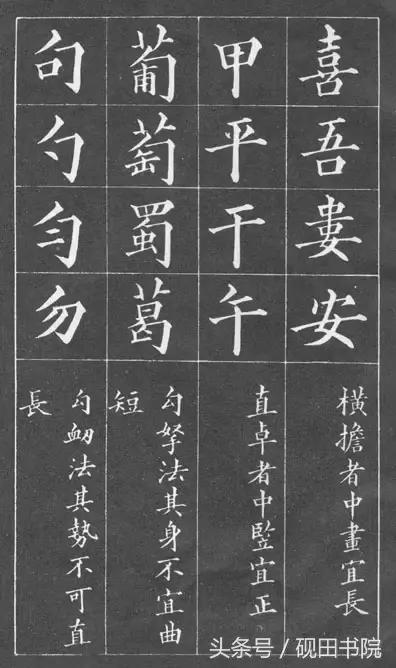 喜吾婁安
橫擔者中畫宜長
甲平干午
直卓者中竪宜正
葡萄蜀葛
勾拏法其身不宜曲
短
句勺勻勿
勾衂法其勢不可直
長
头条号／砚田书院